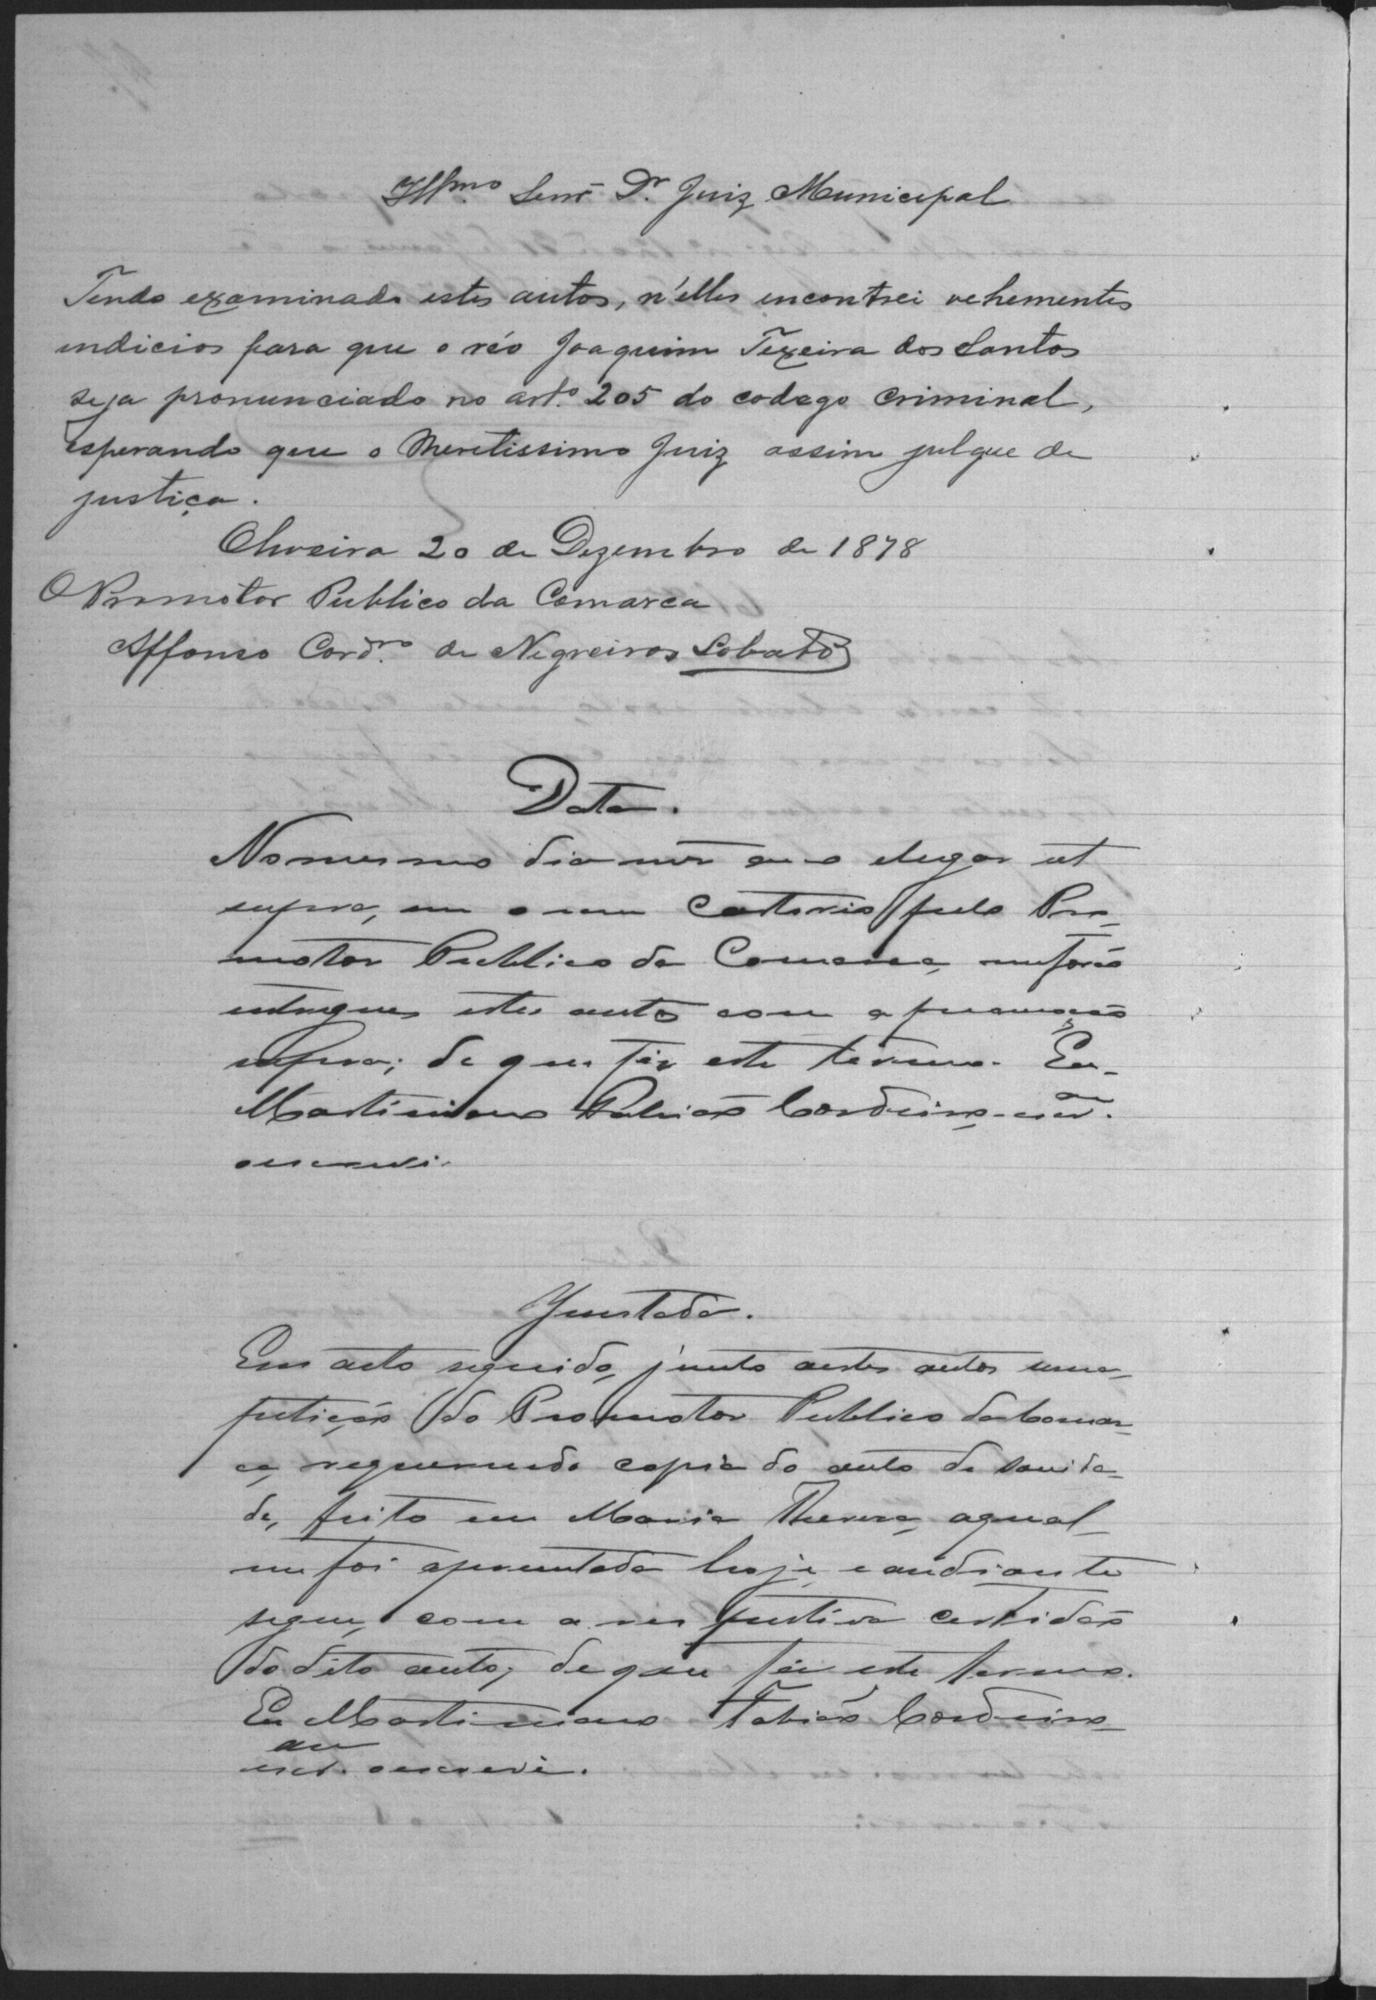 Illmo. Senr. Dr. Juiz Municipal
Tendo examinado estes autos, n'elles encontrei vehementes
indicios para que o réo Joaquim Texeira dos Santos
seja pronunciado no arto. 205 do codego criminal,
esperando que o Meretissimo Juiz assim julgue de
justiça.
Oliveira 20 de Dezembro de 1878
O Promotor Publico da Comarca
Affonso Cordro. de Negreiros Lobato
Data.
No mesmo dia mez anno e lugar ut
supra, em o meu Cartorio pelo Pro-
motor Publico da Comarca, me forão
entregues estes autos com a promoção
supra; de que fiz este termo. Eu
Martiniano Fabião Cordeiro escram.
o escrevi.
Juntada.
Em acto seguido, junto aestes autos uma
petição do Promotor Publico da Comar-
ca, requerendo copia do auto de sanida-
de, feito em Maria Thereza, aqual
me foi apresentada hoje, e aodiante
segue, com a respectiva certidão
do dito auto; de que fiz este termo.
Eu Martiniano Fabião Cordeiro
escram. o escrevi.